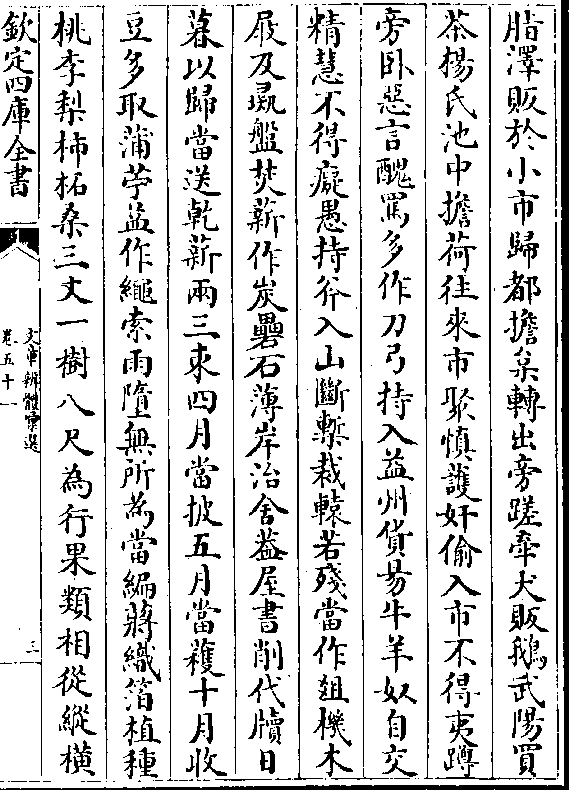 脂澤販於小市歸都擔枲轉出旁蹉牽犬販鵝武陽買
茶楊氏池中擔荷往來市聚慎護奸偷入市不得夷蹲
旁卧惡言醜罵多作刀弓持入益州貨易牛羊奴自交
精慧不得癡愚持斧入山斷槧裁轅若殘當作俎機木
屐及彘盤焚薪作炭礨石薄岸治舍葢屋書削代牘日
暮以歸當送乾薪兩三束四月當披五月當穫十月收
豆多取蒲苧益作繩索雨墮無所為當編蔣織箔植種
桃李梨柿柘桑三丈一樹八尺為行果類相從縱橫
欽定四庫全書
文章辨體彙選
卷五十一
三